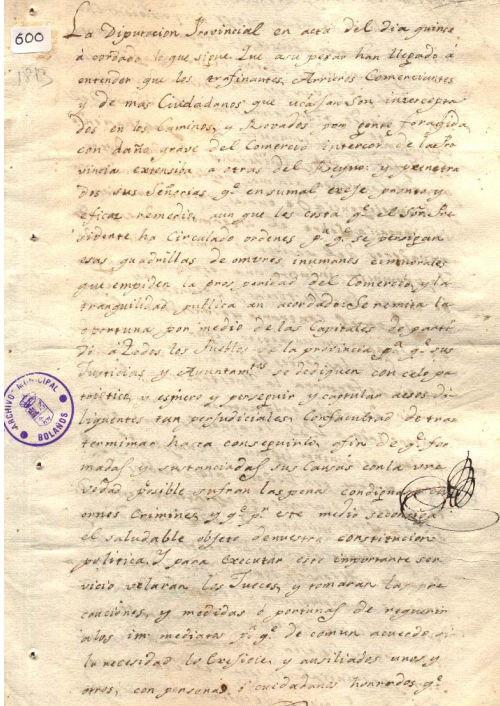 600
La Diputacion Provincial en acta del dia quince
á cordado lo que sigue. Que asu pesar han llegado á
entender que los trafinantes, Arrieros Comerciantes
y de mas Ciudadanos que viajan son intercepta
dos en los Caminos, y Rovados por gente foragida
con daño grave del Comercio interior de la Pro
vincia extensiva á otras del Reyno: y penetra
dos sus Señorias qe. en su mal exije pronto y
eficaz remedio, aun que les costa qe. el Sor. Pre
sidente ha Circulado ordenes pa. qe. se persigan
esas quadrillas de omvres inumanos e inmorales
que empiden la prosperidad del Comercio, y la
tranquilidad publica an acordado: Se remita la
oportuna por medio de las Capitales de parti
do á todos los Pueblos de la provincia pa. qe. sus
Justicias y Ayuntamtos. se dediquen con celo pa
triotico, y esmero y perseguir y capturar a esos de
linquentes tan perjudiciales, Con facultad de tras
terminar hacta conseguirlo, afin de qe. for
madas y sustanciadas sus Causas con la vre
vedad posible sufran las penas condignas
Crimines, y qe. pr. este medio se consiga
el saludable objeto de nuestra constitucion
politica. Y para executar este importante ser
vicio velaran los Jueces, y tomaran las pre
cauciones, y medidas oportunas de requerir
alos immediatos pa. qe. de comun acuerdo si
la necesidad lo exsijiese, y ausiliados unos y
otros, con personas ó cuidadanos honrados qe.
ARCHIVO MUNICIPAL
BOLAÑOS